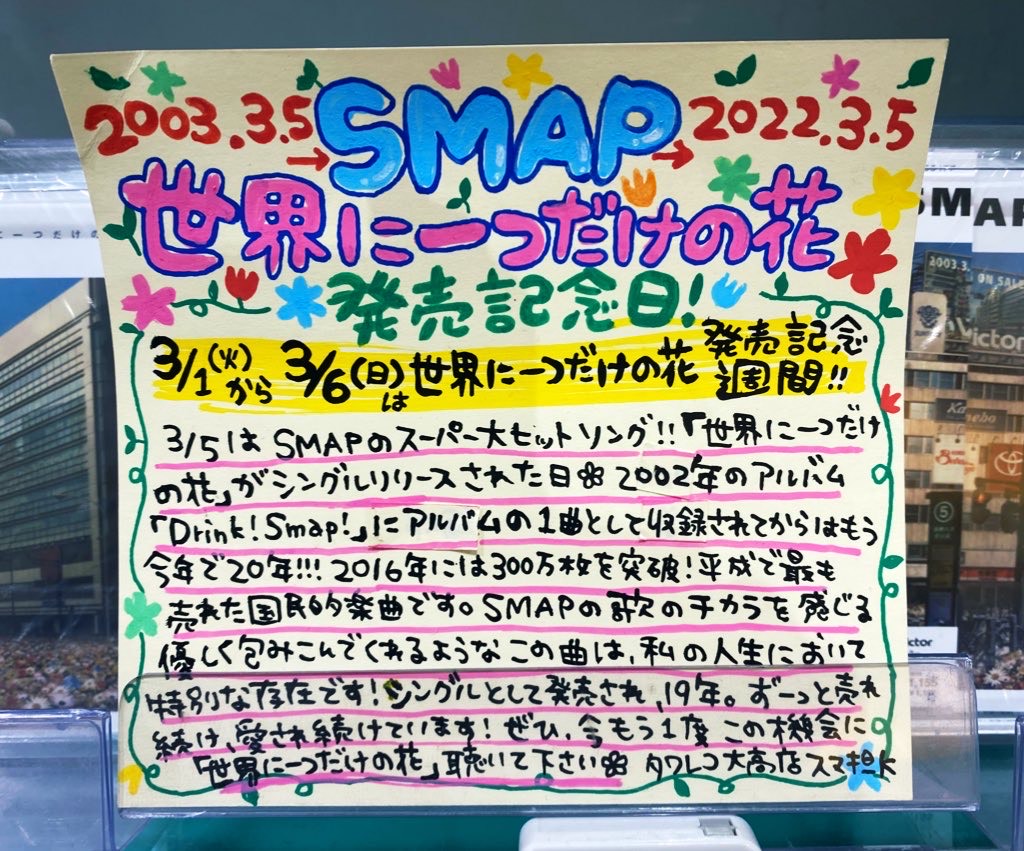 2003.3.5 → SMAP → 2022.3.5
世界に一つだけの花
発売記念日!
3/1(火)から 3/6(日)は世界に一つだけの花 発売記念週間!!
3/5は SMAPのスーパー大ヒットソング!!「世界に一つだけ
の花」がシングルリリースされた日❀ 2002年のアルバム
「Drink! Smap!」にアルバムの1曲として収録されてからはもう
今年で20年!!! 2016年には300万枚を突破!平成で最も
売れた国民的楽曲です。SMAPの歌のチカラを感じる
優しく包みこんでくれるようなこの曲は、私の人生において
特別な存在です!シングルとして発売され、19年。ずーっと売れ
続け、愛され続けています!ぜひ、今もう1度 この機会に
「世界に一つだけの花」聴いて下さい❀ タワレコ大高店スマ担K
に一つだけの
SMAP
2003.3.
ON SALE
Victor
Kanebo
TOYOTA
5
ctor